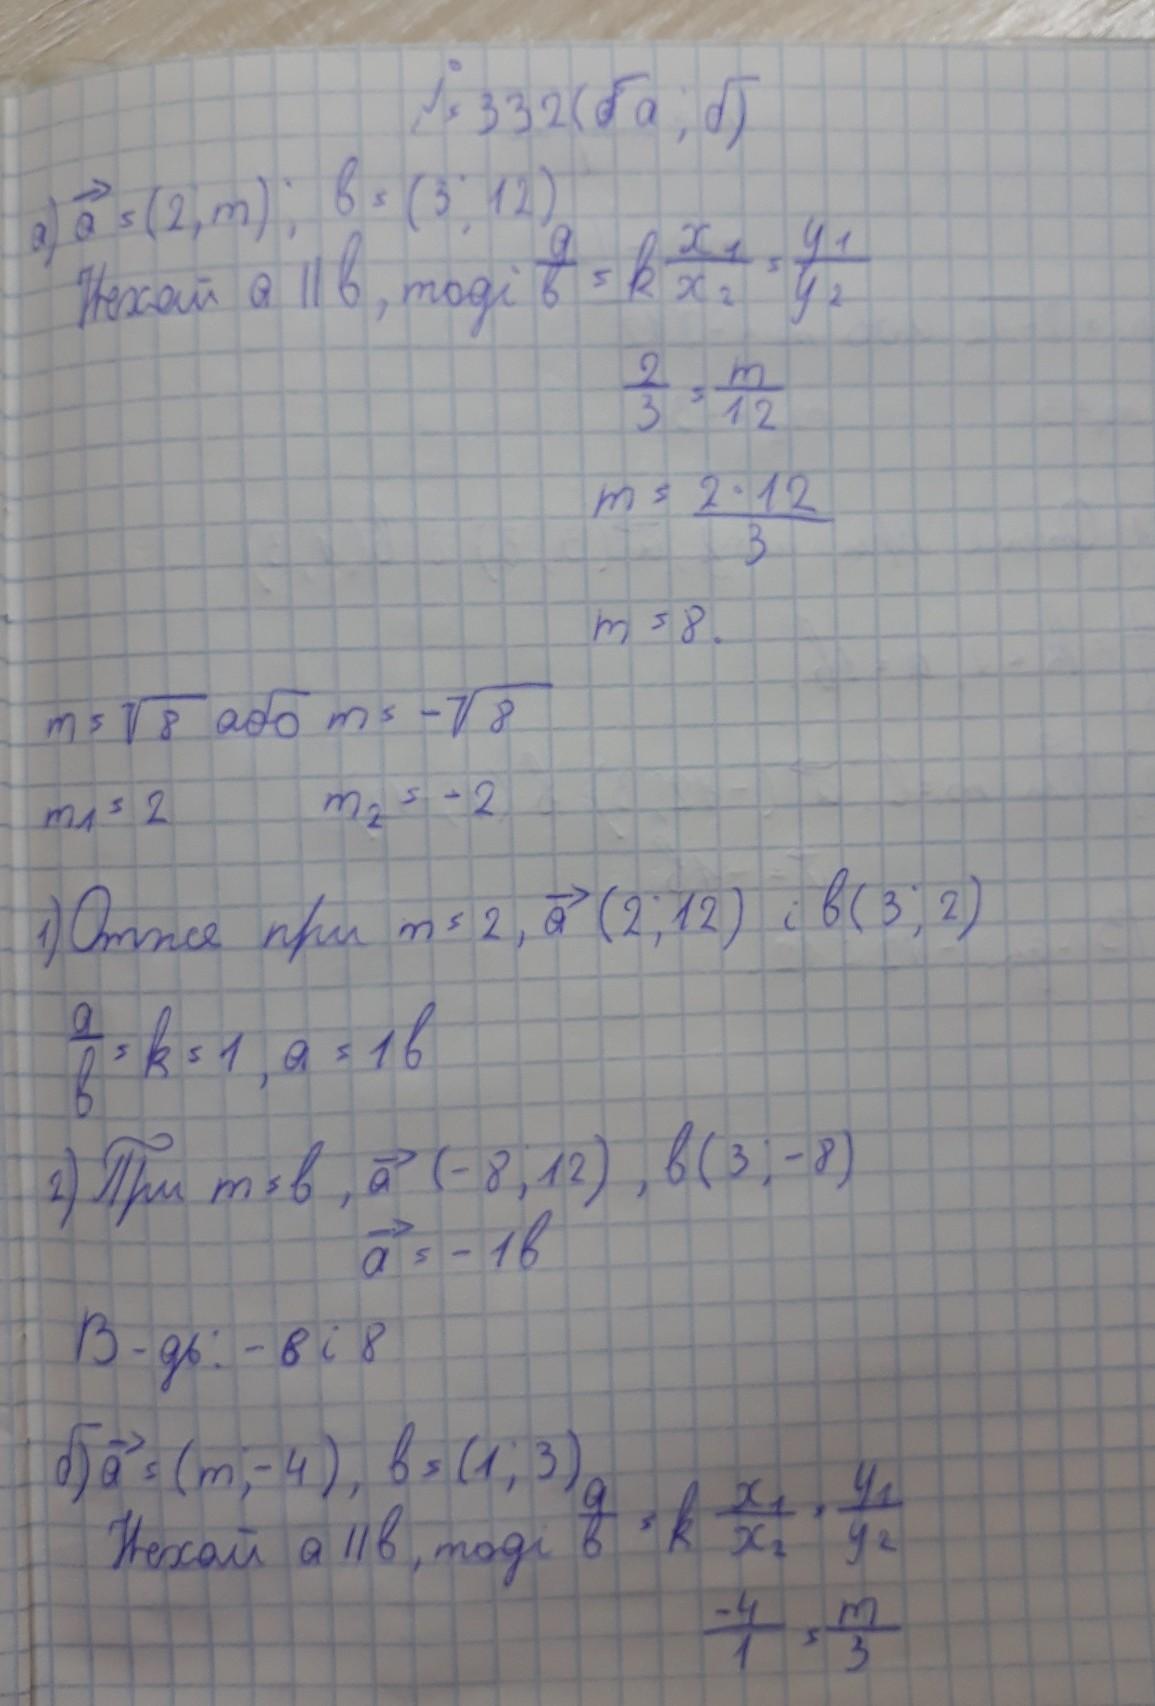 № 332(а; б)
а) a⃗ = (2; m); b = (3; 12)
Нехай a || b, тоді a/b = k x₁/x₂ = y₁/y₂
2/3 = m/12
m = 2·12/3
m = 8.
m = √8 або m = -√8
m₁ = 2 m₂ = -2
1) Отже при m = 2, a⃗ (2; 12) і b(3; 2)
a/b = k = 1, a = 1b
2) При m = b, a⃗ (-8; 12), b(3; -8)
a⃗ = -1b
В-дь: -8 і 8
б) a⃗ = (m; -4), b = (1; 3)
Нехай a || b, тоді a/b = k x₁/x₂ = y₁/y₂
-4/1 = m/3